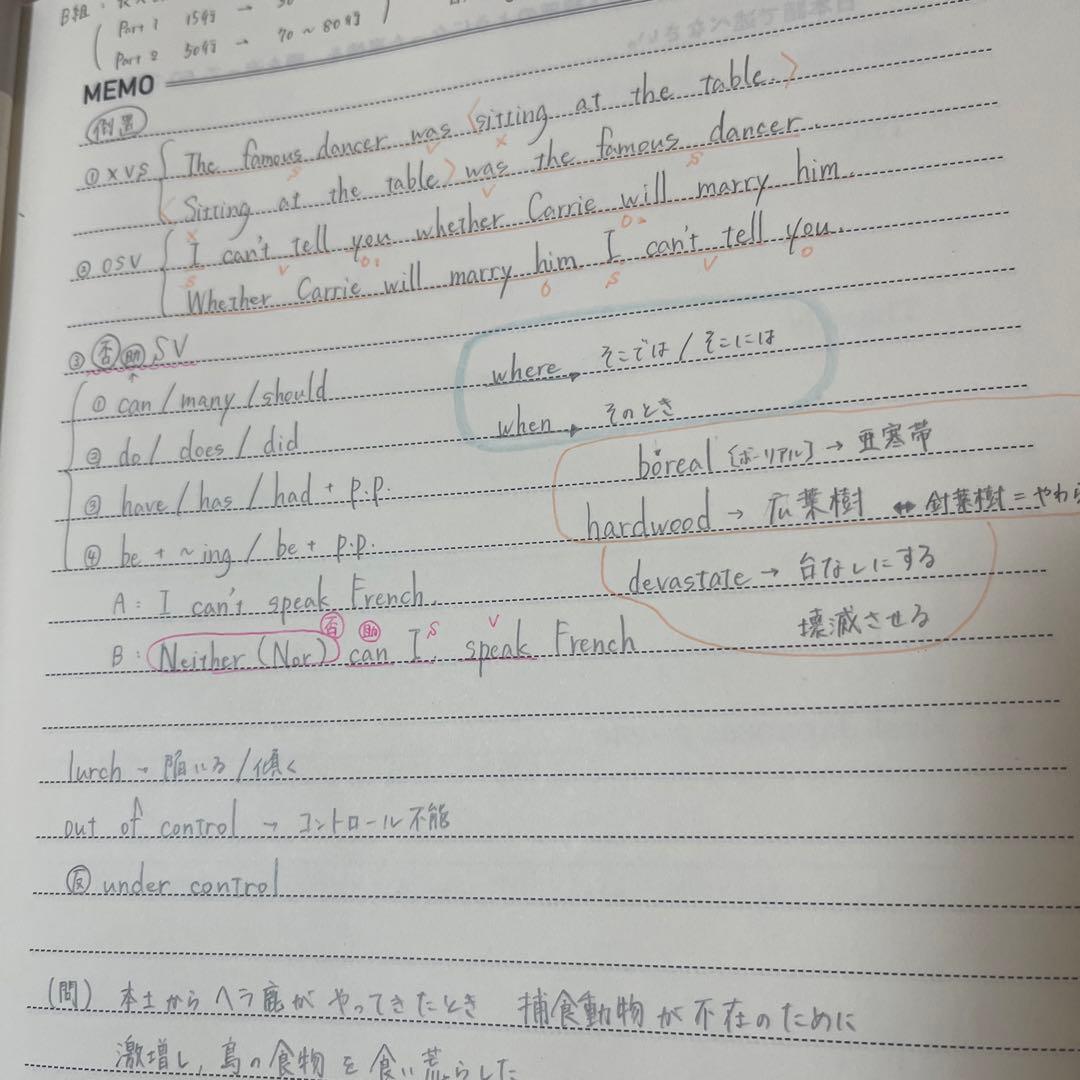 B組:
Part 1 15分 →
Part 2 50分 → 70 ~ 80分
MEMO
倒置
① XVS The famous dancer was 〈sitting at the table.〉
S V X
〈Sitting at the table〉 was the famous dancer.
X V S
② OSV I can't tell you whether Carrie will marry him.
S V O₁ O₂
Whether Carrie will marry him I can't tell you.
O S V O
③ 否 助 SV
① can / many / should
② do / does / did
③ have / has / had + p.p.
④ be + ~ing / be + p.p.
where そこでは / そこには
when そのとき
boreal [ボーリアル] → 亜寒帯
hardwood → 広葉樹 ↔ 針葉樹 = やわら
devastate → 台なしにする
壊滅させる
A : I can't speak French.
否 助 S V
B : Neither (Nor) can I speak French
lurch → 陥いる / 傾く
out of control → コントロール不能
反 under control
(問) 本土からヘラ鹿がやってきたとき 捕食動物が不在のために
激増し, 島の食物を食い荒らした